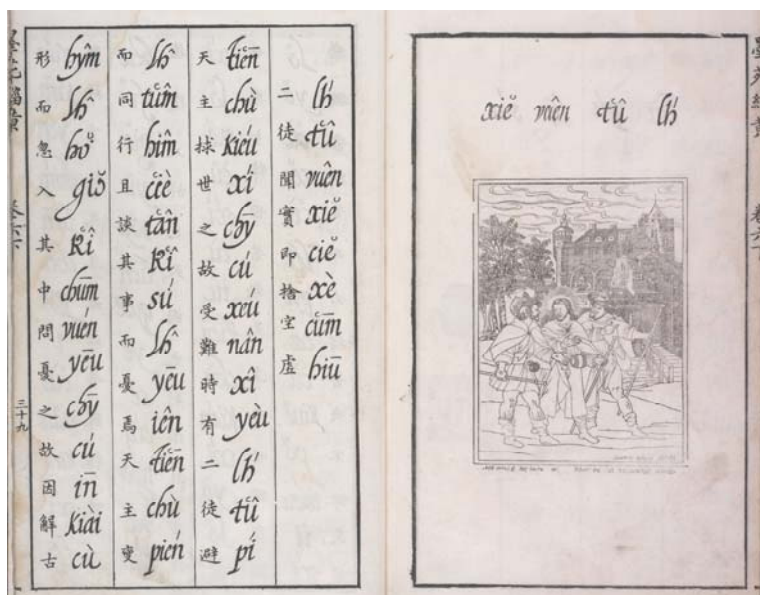 墨苑緇黃 卷六下
lh́ tʻû vuên xiĕ
二徒聞實即捨空虛
lh́ tʻû vuên xiĕ ciĕ xè cʻūm hiū
天主捄世之故受難時有二徒避
tʻiēn chù kiéu xí chȳ cú xéu nân xî yèu lh́ tʻû pí
而同行且談其事而憂焉天主變
lĥ tʻûm hîm cʻiè tʻân kʻî sú lĥ yēu iên tʻiēn chù pién
形而忽入其中問憂之故因解古
hŷm lĥ hŏ giŏ kʻî chūm vuén yēu chȳ cú īn kiài cù
墨苑緇黃 卷六下 三十九